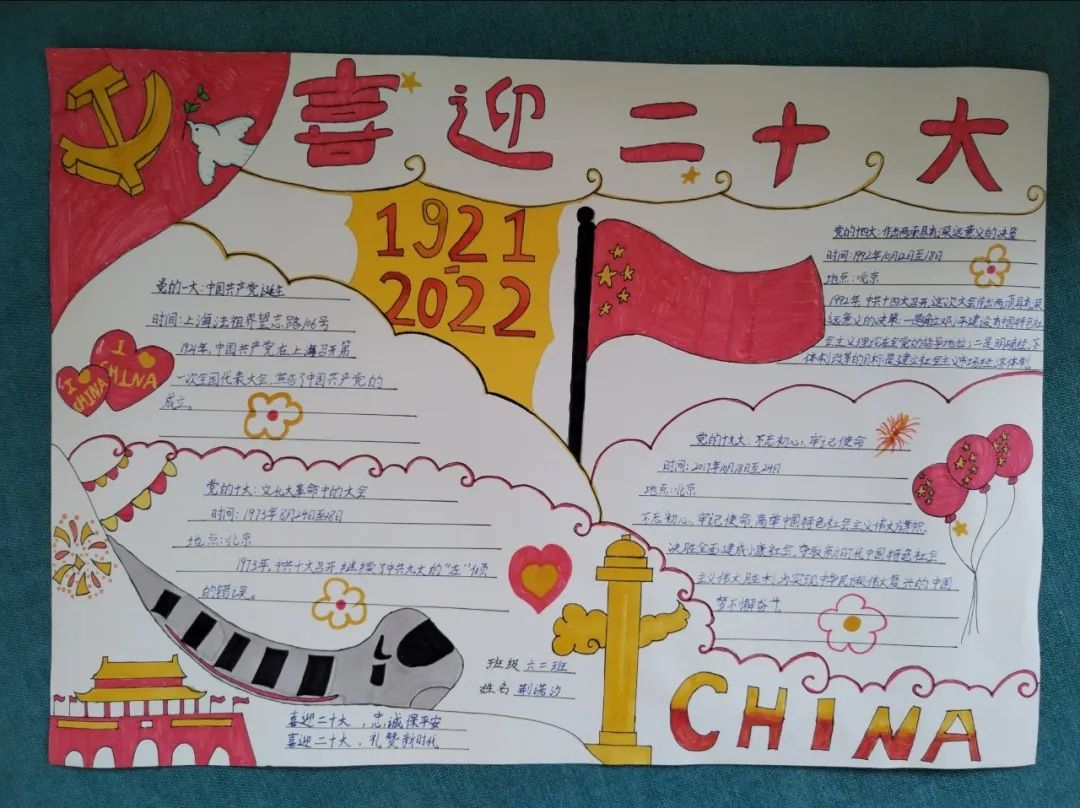 喜迎二十大
1921-
2022
党的一大：中国共产党诞生
时间：上海法租界望志路106号
1921年，中国共产党在上海召开第
一次全国代表大会，宣告了中国共产党的
成立。
I
CHINA
I
CHINA
党的十四大：作出两项具有深远意义的决策
时间：1992年10月12日至18日
地点：北京
1992年中共十四大召开，这次大会作出两项具有深
远意义的决策。一是确立邓小平建设有中国特色社
会主义理论在全党的指导地位；二是明确经济
体制改革的目标是建立社会主义市场经济体制。
党的十大：文化大革命中的大会
时间：1973年8月24日至28日
地点：北京
1973年，中共十大召开，继续了中共九大的“左”倾
的错误。
党的十九大：不忘初心，牢记使命
时间：2017年10月18日至24日
地点：北京
不忘初心，牢记使命，高举中国特色社会主义伟大旗帜，
决胜全面建成小康社会，夺取新时代中国特色社会
主义伟大胜利，为实现中华民族伟大复兴的中国
梦不懈奋斗
班级 六二班
姓名 荆诺汐
喜迎二十大，忠诚保平安
喜迎二十大，礼赞新时代
CHINA